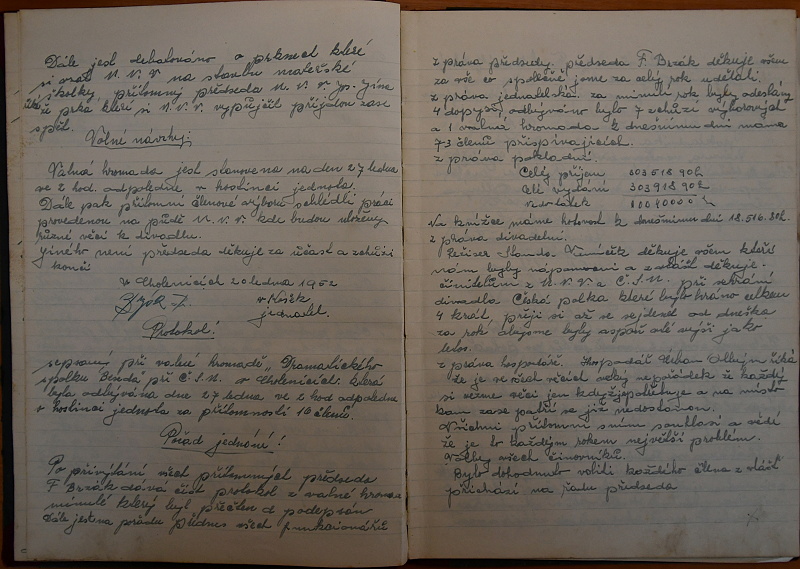 Dále jest debatováno o prknech které
si vzal M.N.V na stavbu mateřské
školky, přítomný předseda M.N.V. p. Jína
říká že prkna kteří si M.N.V. vypůjčil přijdou zase
zpět.
Volné návrhy:
Valná hromada jest stanovena na den 27 ledna
ve 2 hod. odpoledne v hostinci jednota.
Dále pak přítomní členové výboru schlédli práci
provedenou na půdě M.N.V. kde budou uloženy
různé věci k divadlu.
Jiného není předseda děkuje za účast a schůzi
končí
v Cholenicích 20 ledna 1952
jednatel.
Protokol!
sepsaný při valné hromadě „Dramatického
spolku Benda" při Č.S.M. v Cholenicích. která
byla odbývána dne 27 ledna ve 2 hod odpoledne
v hostinci jednota za přítomnosti 16 členů.
Pořad jednání!
Po přivítání všech přítomných předseda
F Brzák dává číst protokol z valné hromady
minulé který byl přečten a podepsán
Dále jest na pořadu přednes všech funkcionářů
zpráva předsedy. předseda F. Brzák děkuje všem
za vše co společně jsme za celý rok udělali.
zpráva jednatelská. za minulí rok byly odeslány
4 dopisy, odbýváno bylo 7 schůzí výborových
a 1 valná hromada k dnešnímu dni máme
73 členů přispívajících.
zpráva pokladní.
Celý příjem 303518 90h
Celé vydání 303918 90h
zůstatek
Na knížce máme hotovost k dnešnímu dni 18.516.30h.
zpráva divadelní.
Režiser Standa děkuje všem kteří
nám byly nápomocni a zvlášť děkuje
činitelům z M.N.V a Č.S.M. při sehrání
divadla Česká polka které bylo hráno celkem
4 krát, přeji si až se sejdeme od dneška
za rok abysme byly aspoň tak výši jako
letos.
zpráva hospodáře. Hospodář říká
že je ve všech věcích velký nepořádek že každý
si vezme věci jen když potřebuje a na místo
kam zase patří se již nedostanou.
Všichni přítomní s ním souhlasí a vědí
že je to každým rokem největší problém.
Volby všech činovníků.
Bylo dohodnuto voliti každého člena zvlášť
přichází na řadu předseda